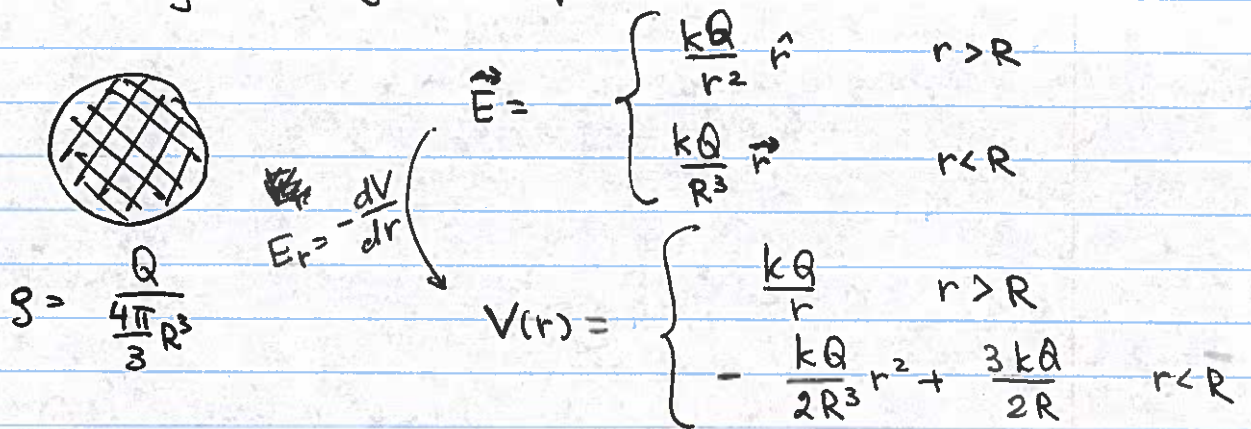 E⃗ = { kQ/r² r̂    r > R
kQ/R³ r⃗    r < R
E_r = - dV/dr
ρ = Q / (4π/3 R³)
V(r) = { kQ/r    r > R
- kQ/2R³ r² + 3kQ/2R    r < R